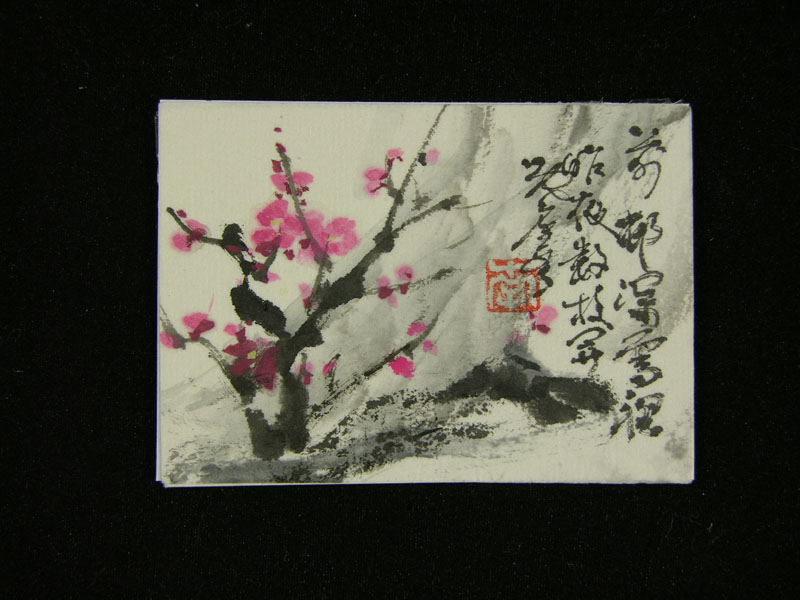 前村深雪裡
昨夜數枝開